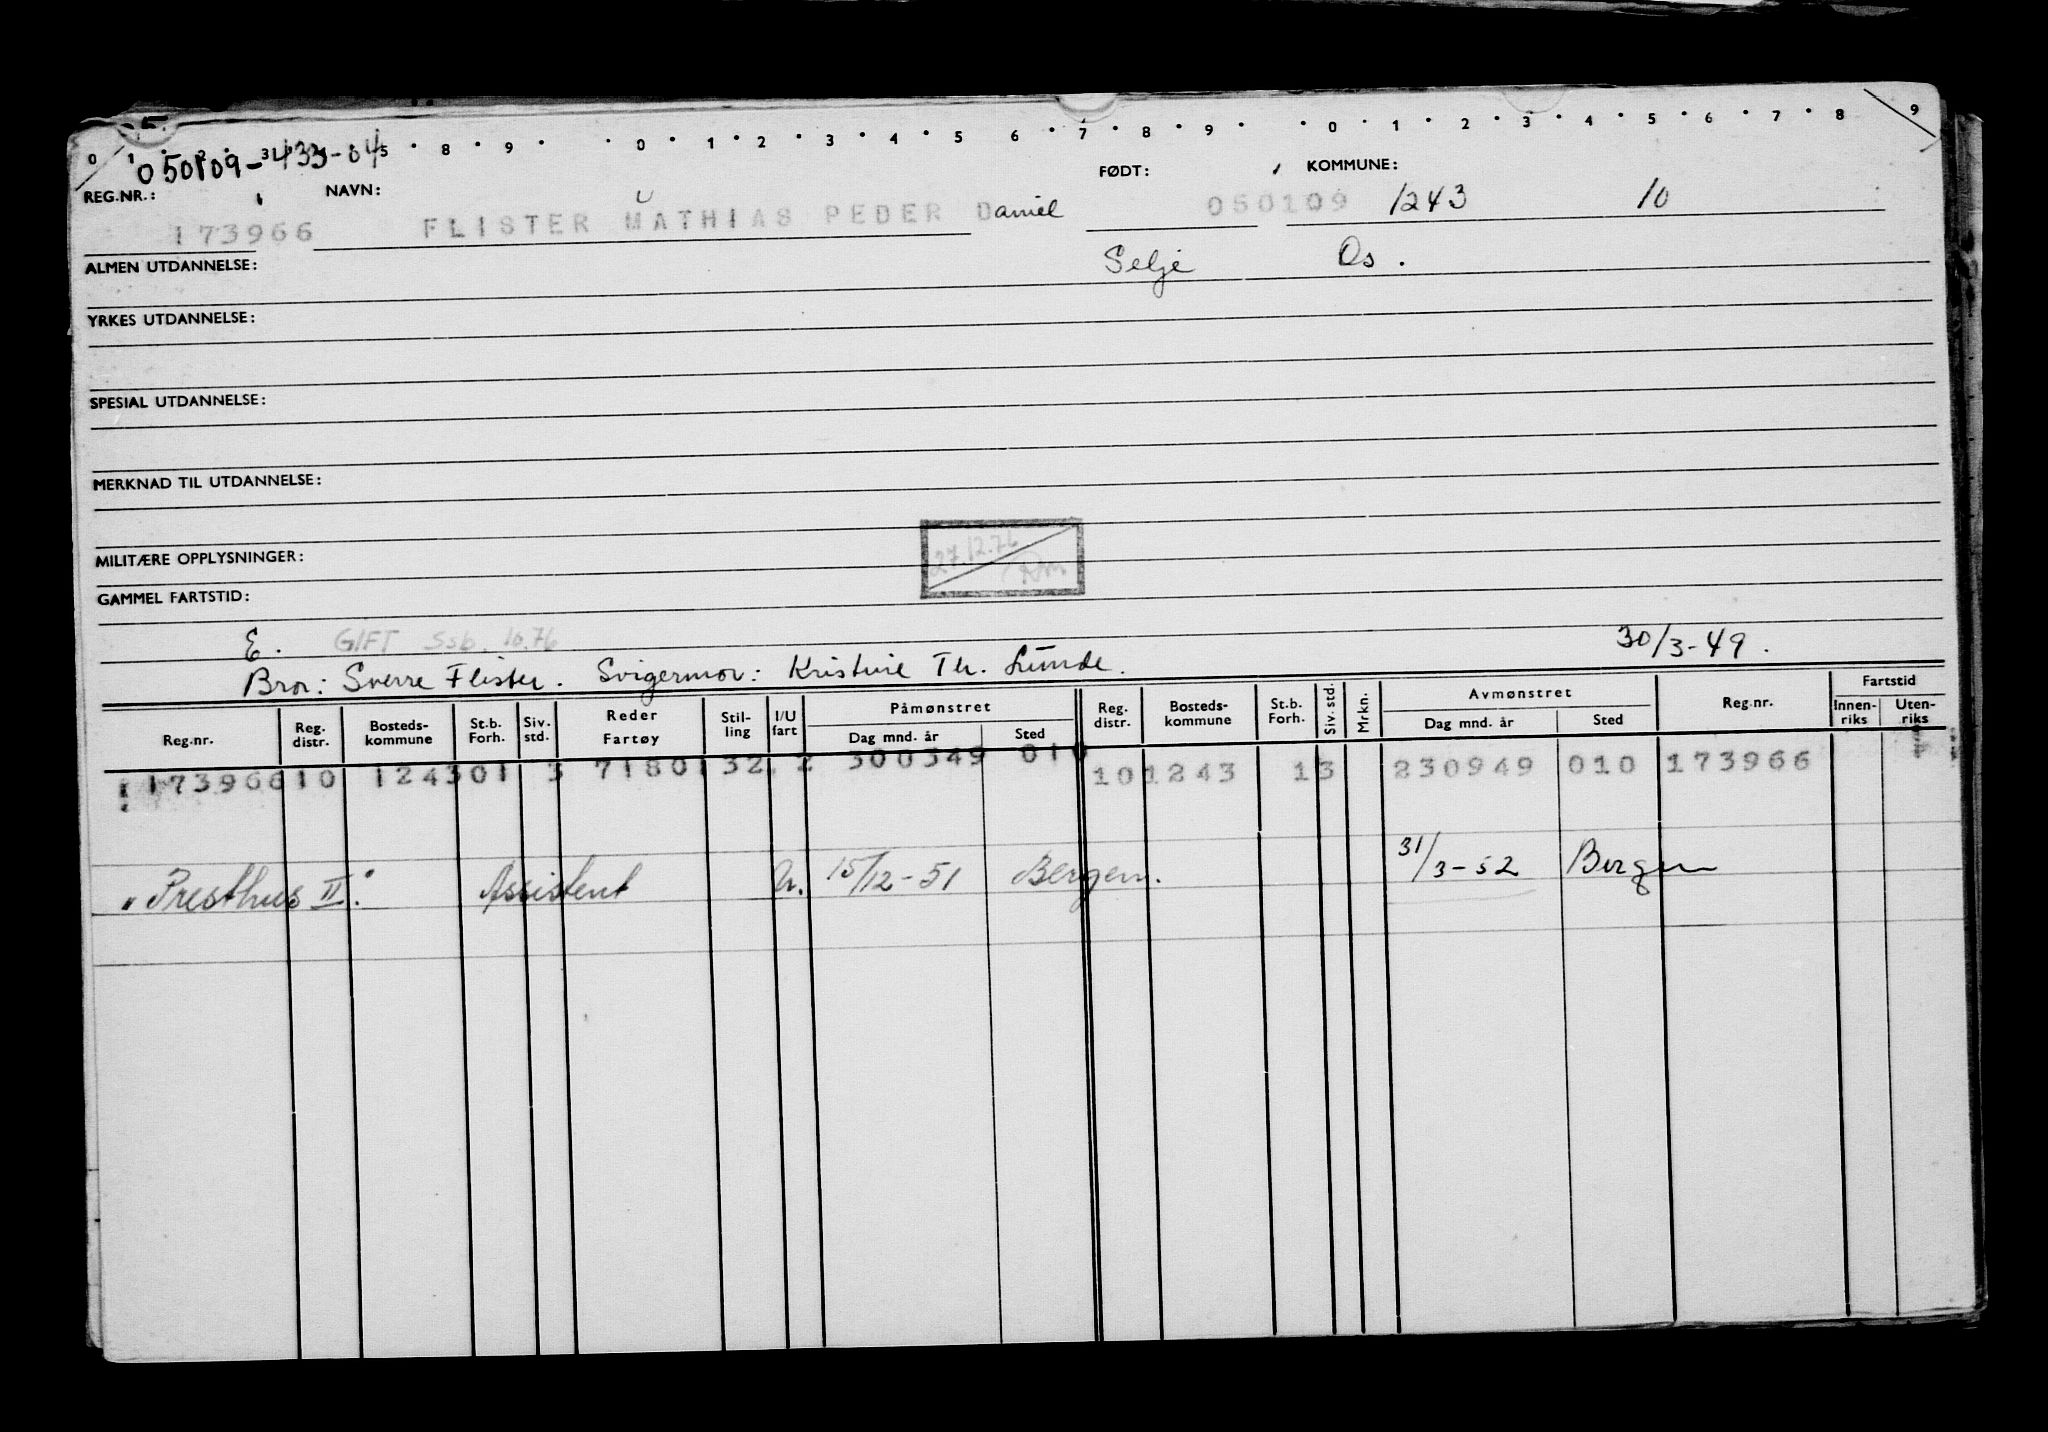 0 1 2 3 4 5 8 9 · · 0 · 1 · 2 · 3 · 4 · 5 6 · 7 · 8 · 9 · · 0 · 1 · 2 · 3 · 4 · 5 · 6 · 7 · 8 9
050109-433-04
REG.NR.: NAVN: FØDT: KOMMUNE:
173966 FLISTER MATHIAS PEDER Daniel 050109 1243 10
ALMEN UTDANNELSE: Selje Os.
YRKES UTDANNELSE:
SPESIAL UTDANNELSE:
MERKNAD TIL UTDANNELSE:
27.12.76
MILITÆRE OPPLYSNINGER:
GAMMEL FARTSTID:
E. GIFT Ssb. 10.76 30/3-49.
Bror: Sverre Flister. Svigermor: Kristine Th. Lunde.
Reg.nr. Reg. distr. Bosteds-kommune St.b. Forh. Siv. std. Reder Fartøy Stil-ling I/U fart Påmønstret Dag mnd. år Sted Reg. distr. Bosteds-kommune St.b. Forh. Siv. std. Mrkn. Avmønstret Dag mnd. år Sted Reg.nr. Fartstid Innen-riks Uten-riks
173966 10 1243 01 3 7180 132 2 300349 010 10 1243 1 3 230949 010 173966
"Presthus II." Assistent U. 15/12-51 Bergen. 31/3-52 Bergen